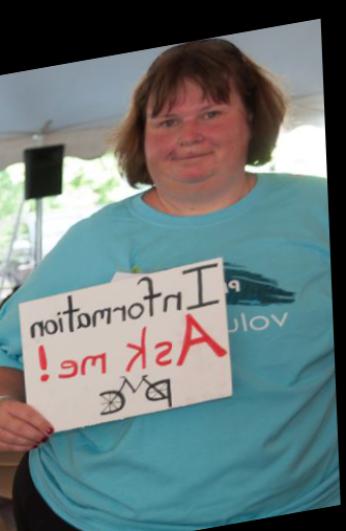 Information
Ask me!
PMC